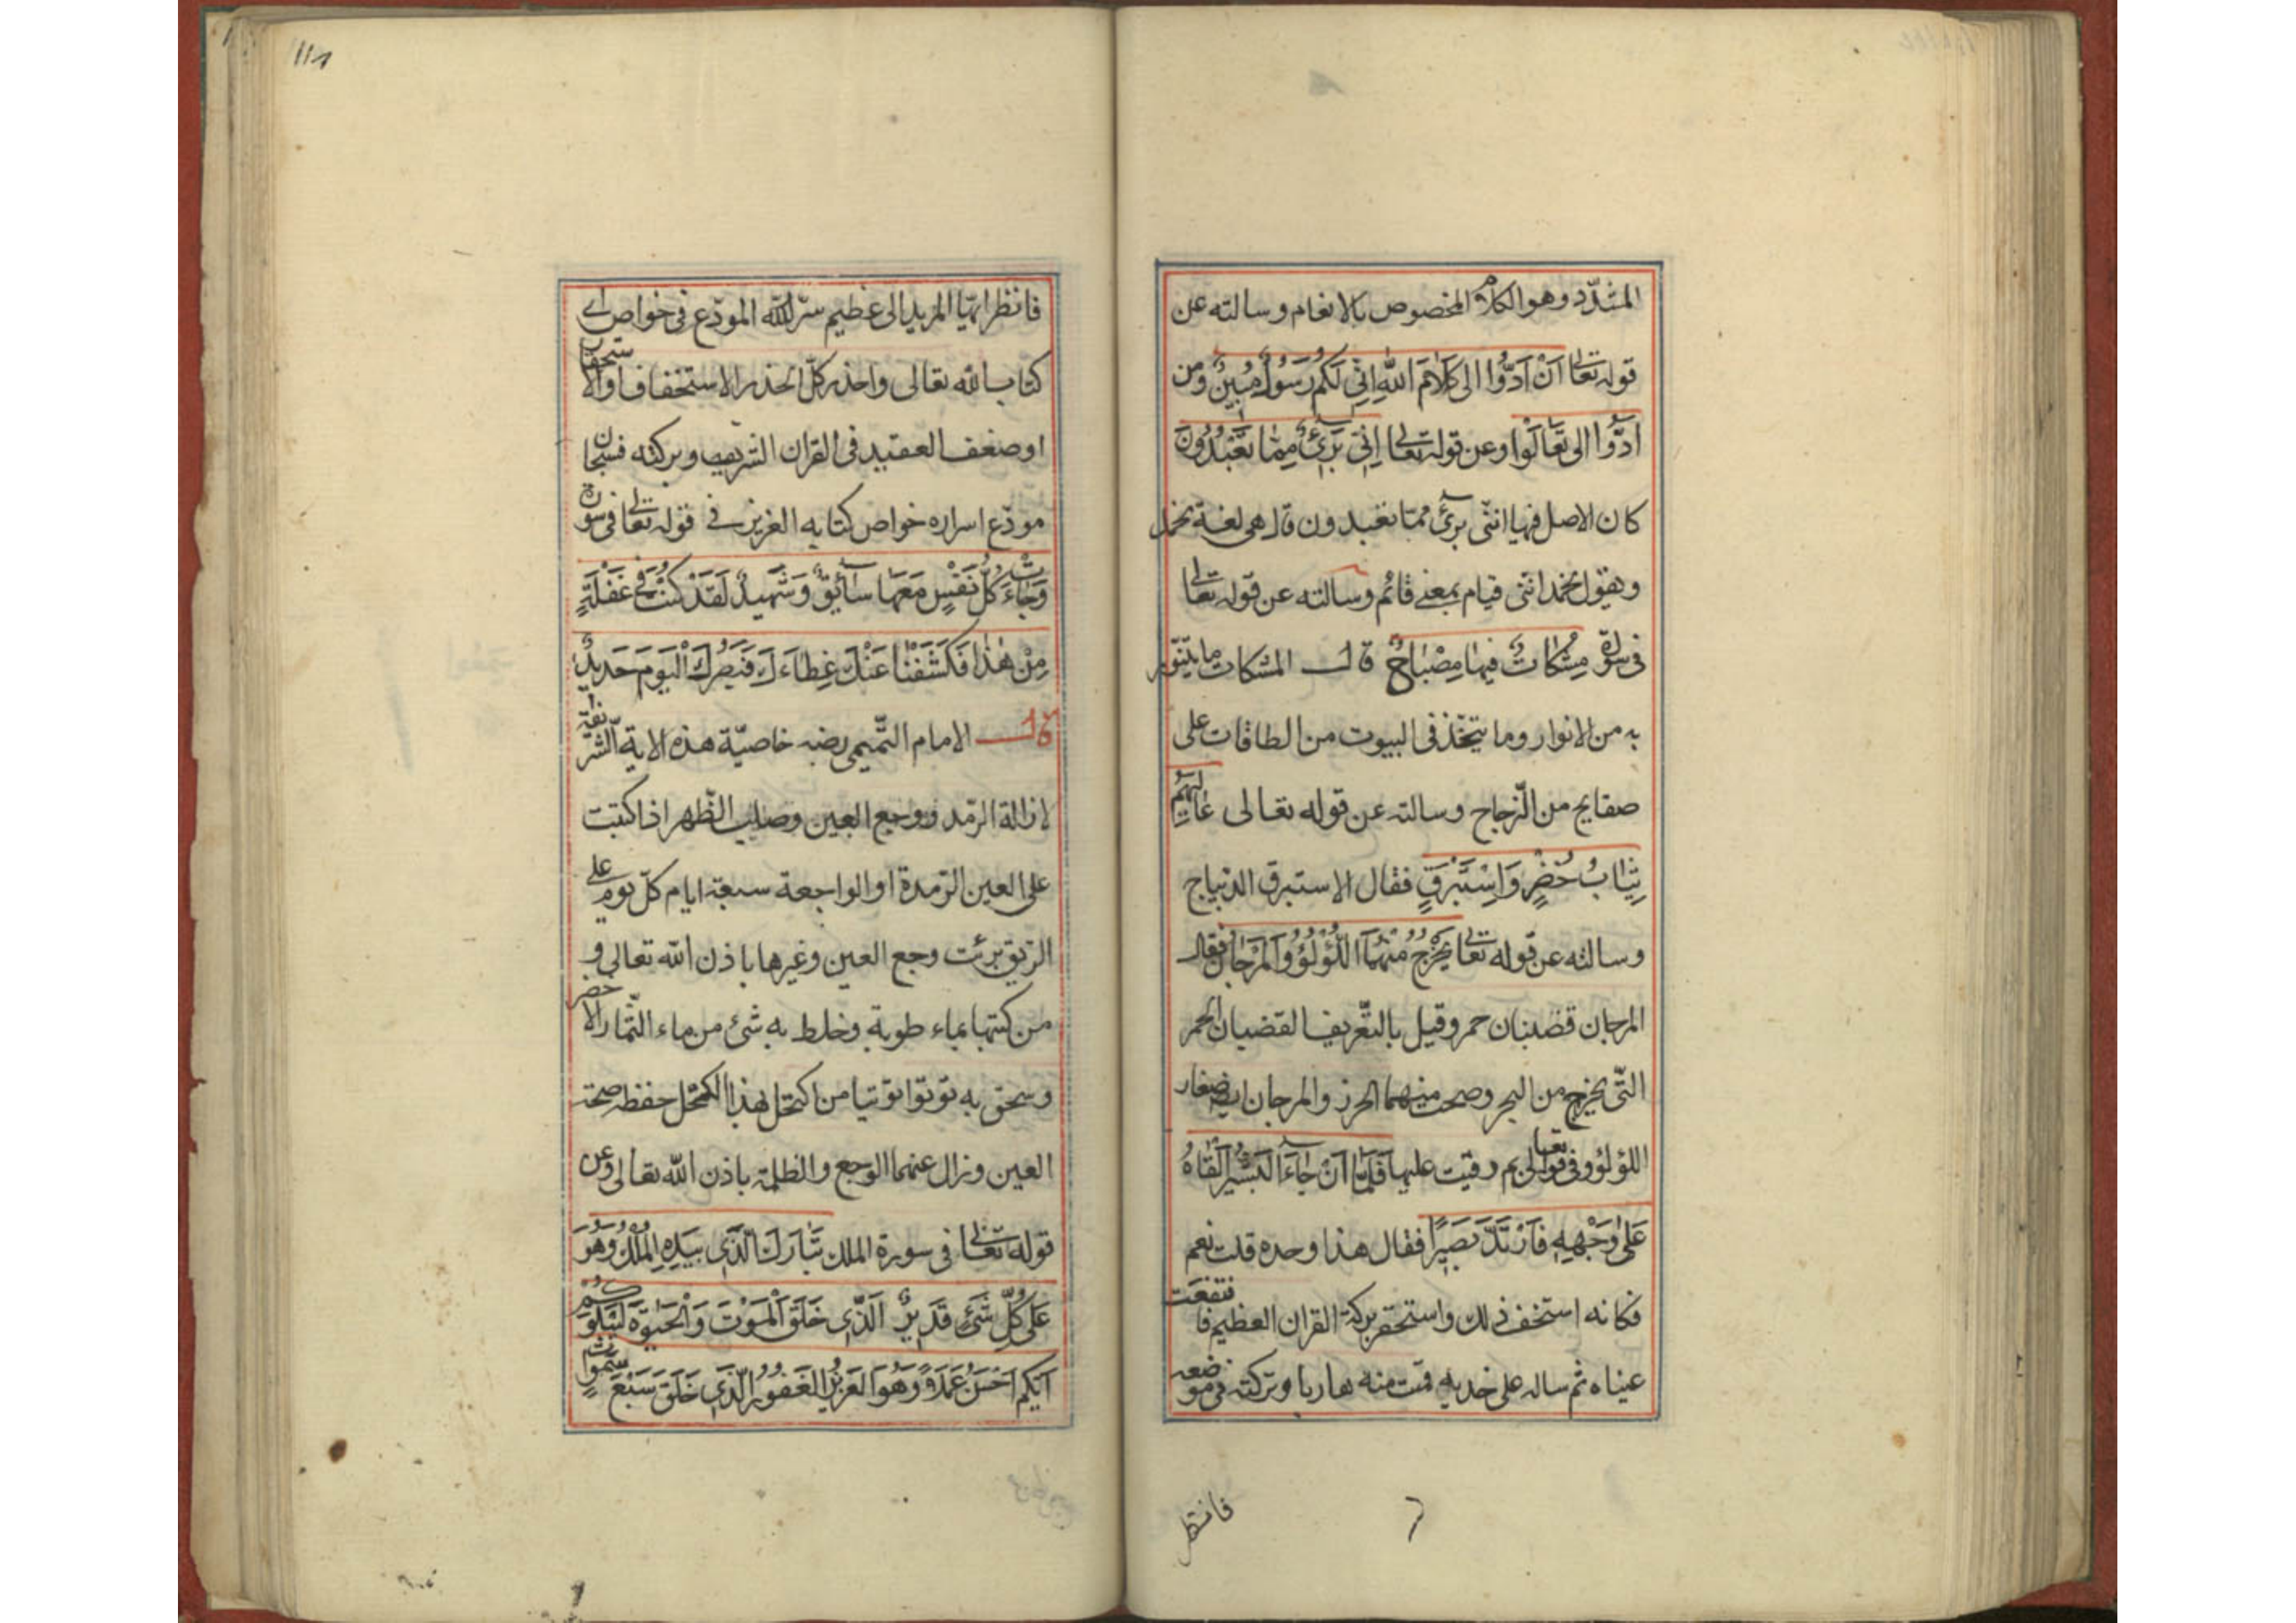 المشدّد وهو الكلام المخصوص بالانغام وسالته عن
قوله تعالى اَنْ اَدُّوا الى كَلَامَ اللهِ اِنِّي لَكُمْ رَسُولٌ مُبِينٌ ومن
اَدُّوا الى تَعَالَوْا وعن قوله تعالى اِنَّنِي بَرِئٌ مِمَّا تَعْبُدُونَ
كان الاصل فيها انثى برئ مما تعبدون قال هى لغة نخد
ويقول نخد انثى قيام بمعنى قائم وسالته عن قوله تعالى
فى سورة مِشْكَاتٌ فيهَا مِصْبَاحٌ قال المشكات ما يتنوّر
به من الانوار وما يتخذ فى البيوت من الطاقات على
صفايح من الزّجاج وسالته عن قوله تعالى عَالِيَهُمْ
ثِيَابُ خُضْرٍ وَاِسْتَبْرَقٍ فقال الاستبرق الديباج
وسالته عن قوله تعالى يَخْرُجُ مِنْهُمَا اللُّؤْلُؤُ وَالْمَرْجَانُ فقال
المرجان قضبان حمر وقيل بالتّعريف القضبان الحمر
التّى يخرج من البحر وصحت منهما الحرز والمرجان ايضه صغار
اللؤلؤ وفى قوله تعالى بم رقيت عليها فَلَمَّا اَنْ جَاءَ الْبَشِيرُ اَلْقَاهُ
عَلَى وَجْهِهِ فَارْتَدَّ بَصِيرًا فقال هذا وحده قلت نعم
فكانه استخف ذلك واستحقر بركة القران العظيم فانتفعت
عيناه ثم ساله على خديه قمت منه هاربا وتركته فى موضعه
فانظر
١١٨
فانظر ايّها المريد الى عظيم سرّ الله المودّع فى خواص اى
كتاب الله تعالى واحذر كلّ الحذر الاستخفاف او الاستحقار
او ضعف العقيد فى القران الشريف وبركته فسبحان
مودّع اسراره خواص كتابه العزيز فى قوله تعالى فى سورة
وَجَاءَتْ كُلُّ نَفْسٍ مَعَهَا سَائِقٌ وَشَهِيدٌ لَقَدْ كُنْتَ فِي غَفْلَةٍ
مِنْ هٰذَا فَكَشَفْنَا عَنْكَ غِطَاءَكَ فَبَصَرُكَ الْيَوْمَ حَدِيدٌ
قال الامام التّميمى رضه خاصيّة هذه الاية الشّريفة
لازالة الرّمد ووجع العين وصلب الظّهر اذا كتبت
على العين الرّمدة او الواجعة سبعة ايام كلّ يوم على
الريق برئت وجع العين وغيرها باذن الله تعالى و
من كتبها بماء طوبة وخلط به شئ من ماء الثّمار الاخضر
وسحق به توتوا توتيا من اكتحل بهذا الكحل حفظه صحة
العين وزال عنهما الوجع والظلمة باذن الله تعالى وعن
قوله تعالى فى سورة الملك تَبَارَكَ الَّذِى بِيَدِهِ الْمُلْكُ وَهُوَ
عَلَى كُلِّ شَئٍ قَدِيرٌ اَلَّذِى خَلَقَ الْمَوْتَ وَالْحَيٰوةَ لِيَبْلُوَكُمْ
اَيُّكُمْ اَحْسَنُ عَمَلًا وَهُوَ الْعَزِيزُ الْغَفُورُ الَّذِى خَلَقَ سَبْعَ سَمٰوَاتٍ